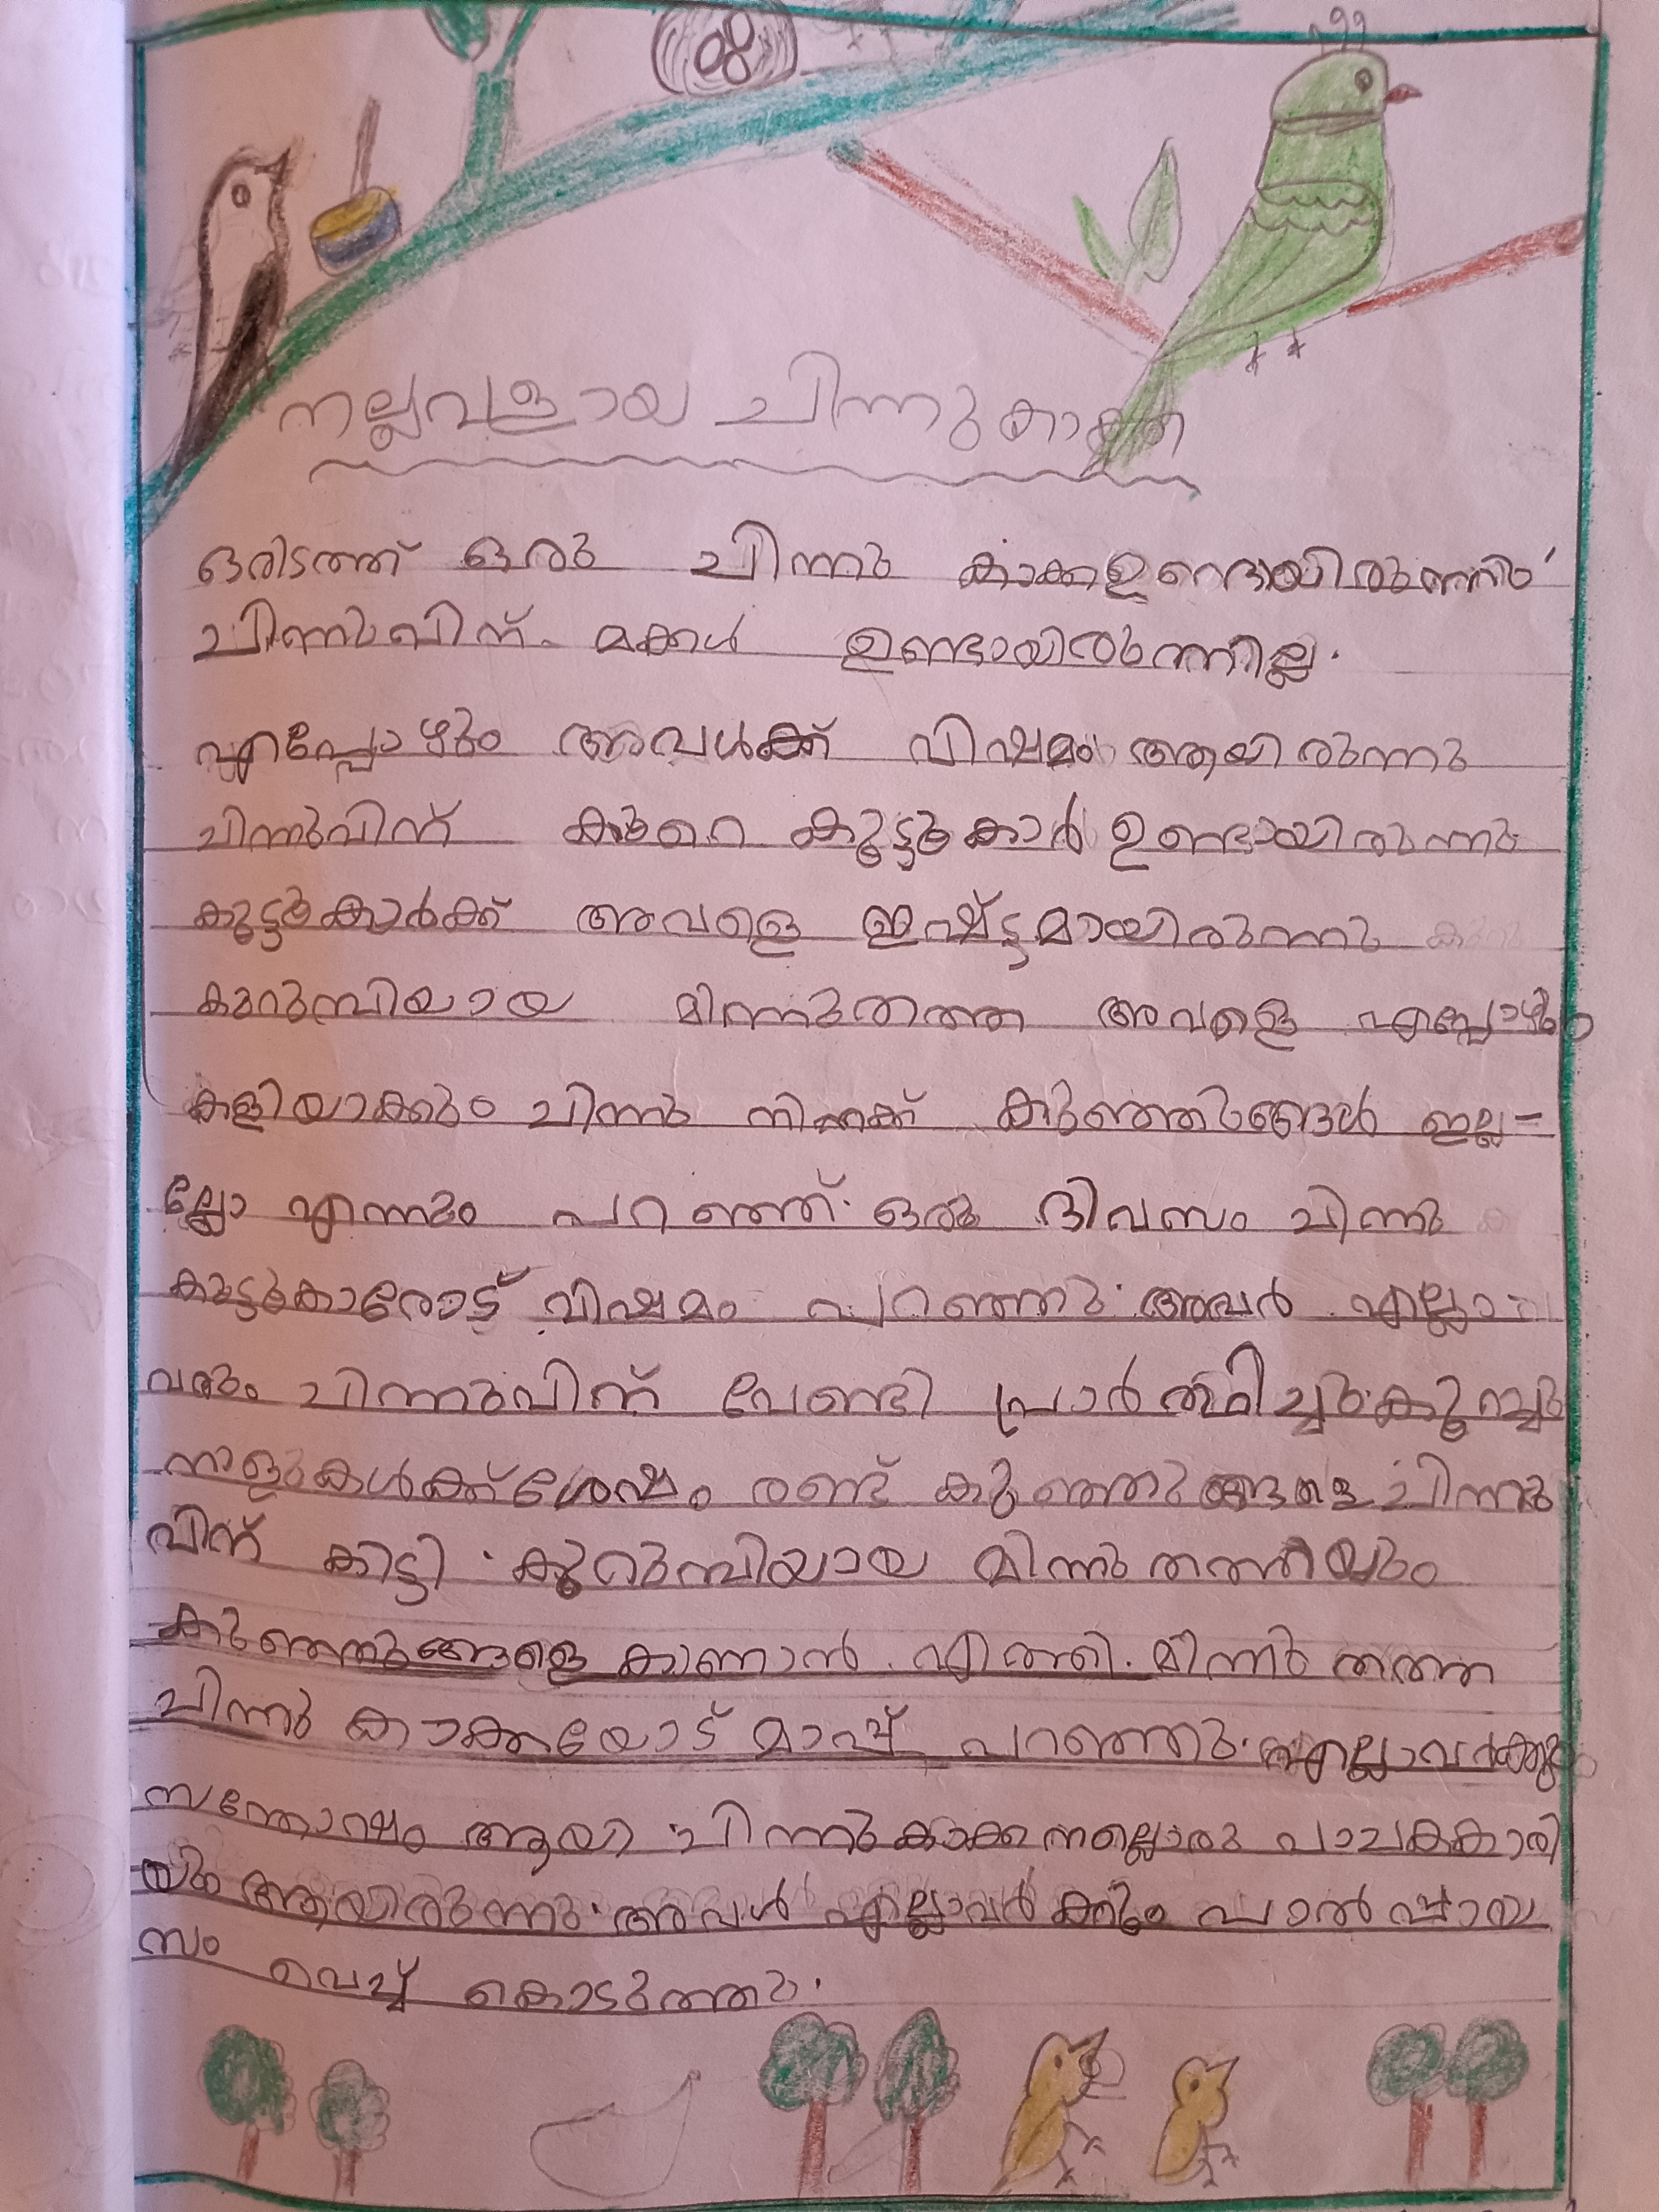 നല്ലവളായ ചിന്നുകാക്ക
ഒരിടത്ത് ഒരു ചിന്നു കാക്കഉണ്ടായിരുന്നു
ചിന്നുവിന് മക്കൾ ഉണ്ടായിരുന്നില്ല.
എപ്പോഴും അവൾക്ക് വിഷമം ആയിരുന്നു
ചിന്നുവിന് കുറെ കൂട്ടുകാർ ഉണ്ടായിരുന്നു
കൂട്ടുകാർക്ക് അവളെ ഇഷ്ട്ടമായിരുന്നു
കുറുമ്പിയായ മിന്നുതത്ത അവളെ എപ്പോഴും
കളിയാക്കും ചിന്നു നിനക്ക് കുഞ്ഞുങ്ങൾ ഇല്ല=
ല്ലോ എന്നും പറഞ്ഞ്. ഒരു ദിവസം ചിന്നു
കൂട്ടുകാരോട് വിഷമം പറഞ്ഞു. അവർ എല്ലാ
വരും ചിന്നുവിന് വേണ്ടി പ്രാർത്ഥിച്ചു. കുറച്ചു
നാളുകൾക്ക് ശേഷം രണ്ട് കുഞ്ഞുങ്ങളെ ചിന്നു
വിന് കിട്ടി. കുറുമ്പിയായ മിന്നു തത്തയും
കുഞ്ഞുങ്ങളെ കാണാൻ എത്തി. മിന്നു തത്ത
ചിന്നു കാക്കയോട് മാപ്പ് പറഞ്ഞു. എല്ലാവർക്കും
സന്തോഷം ആയി ചിന്നുകാക്ക നല്ലൊരു പാചകകാരി
യും ആയിരുന്നു. അവൾ എല്ലാവർക്കും പാൽ പ്പായ
സം വെച്ച് കൊടുത്തു.